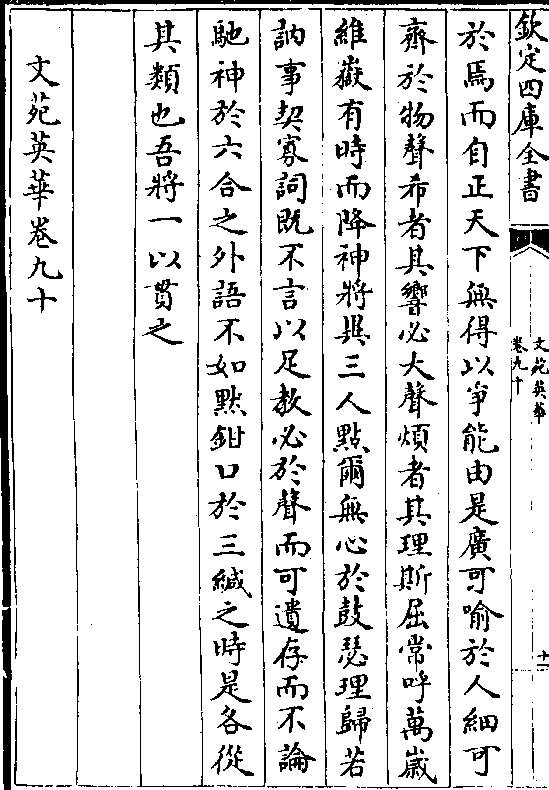 欽定四庫全書
文苑英華
卷九十
十一
於焉而自正天下無得以爭能由是廣可喻於人細可
齊於物聲希者其響必大聲煩者其理斯屈常呼萬歲
維嶽有時而降神將與三人點爾無心於鼓瑟理歸若
訥事契寡詞既不言以足教必於聲而可遺存而不論
馳神於六合之外語不如默鉗口於三緘之時是各從
其類也吾將一以貫之
文苑英華卷九十